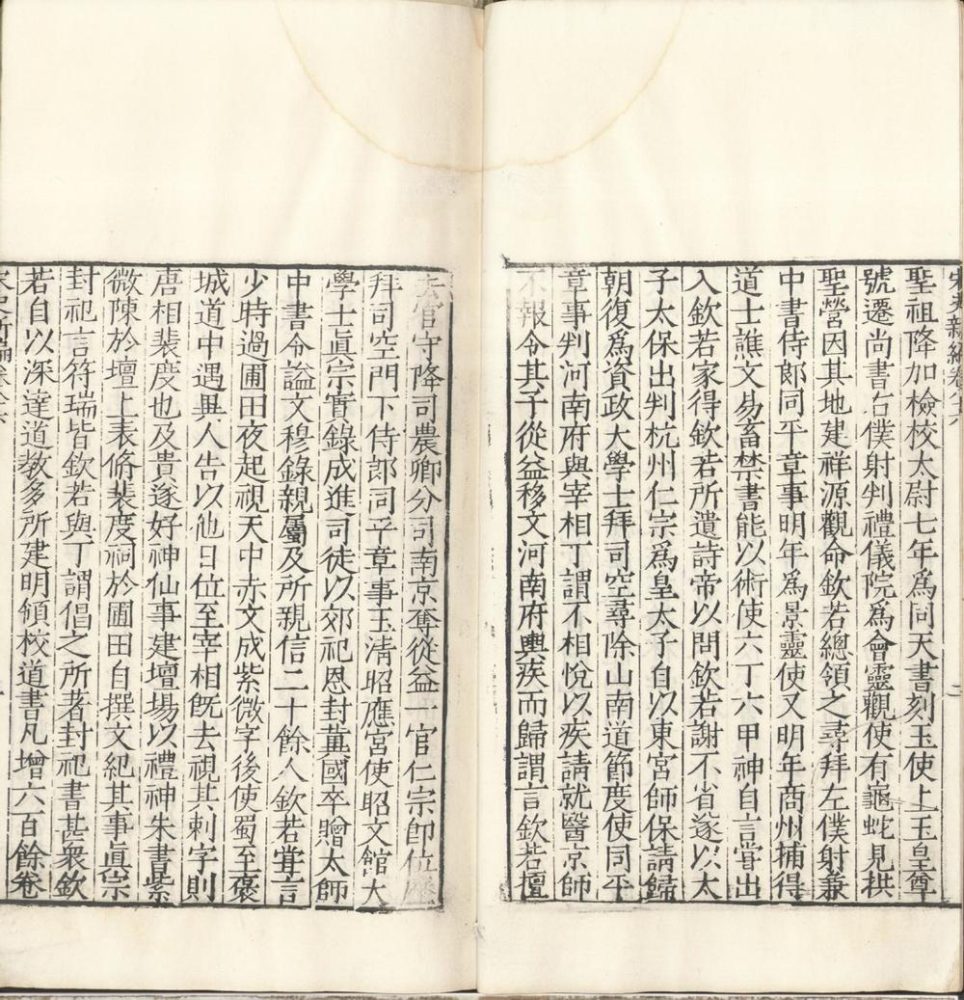 宋史新編卷 二
聖祖降加檢校太尉七年爲同天書刻玉使上玉皇尊
號遷尚書右僕射判禮儀院爲會靈觀使有龜蛇見拱
聖營因其地建祥源觀命欽若總領之尋拜左僕射兼
中書侍郎同平章事明年爲景靈使又明年商州捕得
道士譙文易畜禁書能以術使六丁六甲神自言嘗出
入欽若家得欽若所遺詩帝以問欽若謝不省遂以太
子太保出判杭州仁宗爲皇太子自以東宮師保請歸
朝復爲資政大學士拜司空尋除山南道節度使同平
章事判河南府與宰相丁謂不相悅以疾請就醫京師
不報令其子從益移文河南府輿疾而歸謂言欽若擅
去官守降司農卿分司南京奪從益一官仁宗即位歷
拜司空門下侍郎同平章事玉清昭應宮使昭文館大
學士眞宗實錄成進司徒以郊祀恩封冀國卒贈太師
中書令謚文穆錄親屬及所親信二十餘人欽若嘗言
少時過圃田夜起視天中赤文成紫微字後使蜀至褒
城道中遇異人告以他日位至宰相旣去視其刺字則
唐相裴度也及貴遂好神仙事建壇場以禮神朱書紫
微陳於壇上表脩裴度祠於圃田自撰文紀其事眞宗
封祀言符瑞皆欽若與丁謂倡之所著封祀書甚衆欽
若自以深達道教多所建明領校道書凡增六百餘卷